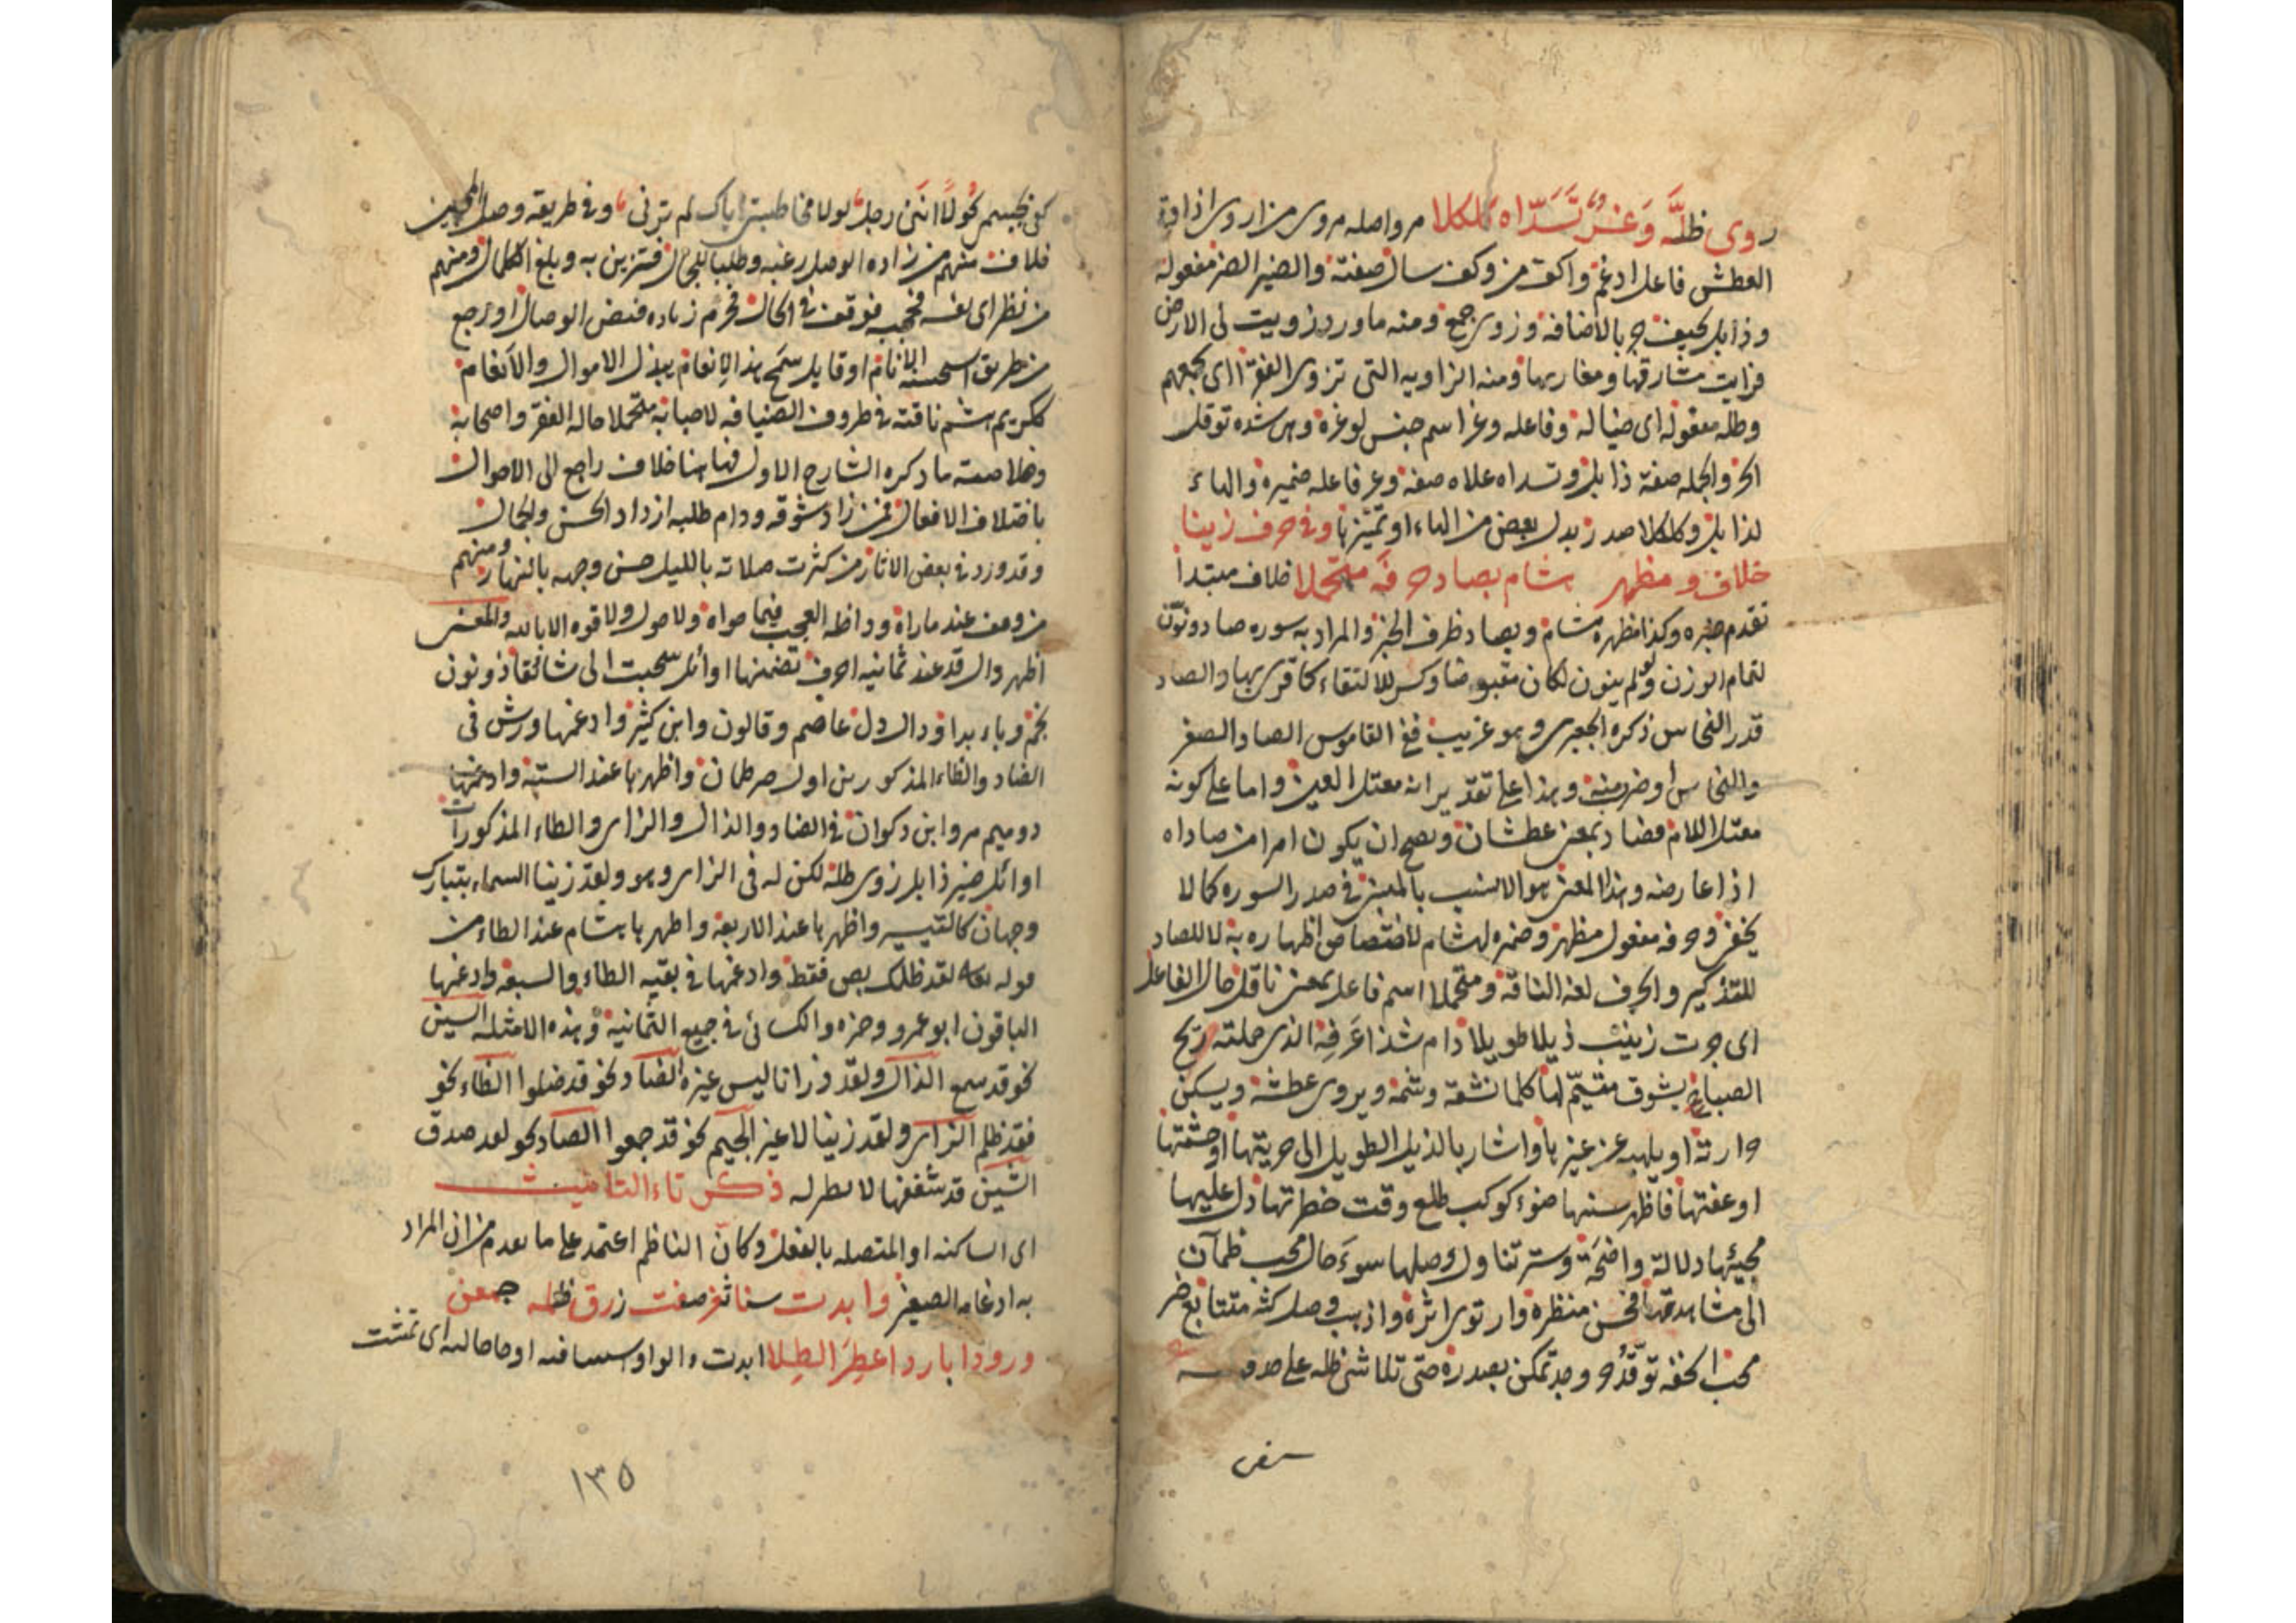 زوى ظله وغر تسداه كلكلا مر واصله مروى من اروى اذا اذهب
العطش فاعل ادغم واكف من وكف سال صفته والضير الضر مفعوله
وذابل كحيف جر بالاضافة وزوى جمع ومنه ما ورد زويت لى الارض
فرايت مشارقها ومغاربها ومنه الزاوية التى تزوى الفقراء اى تجمعهم
وظله مفعوله اى خياله وفاعله وغر اسم جنس لوغرة وهى شدة توقد
الحر والجملة صفة ذابل وتسداه علاه صفة وغر فاعله ضميره والهاء
لذابل وكلكلا صدر بدل بعض من الهاء او تمييز وفى حرف زينا
خلاف ومظهر هشام بصاد حرفه متحملا خلاف مبتدأ
تقدم خبره وكذا مظهره هشام وبصاد ظرف الخبر والمراد به سورة صاد ونون
لتمام الوزن ولو لم ينون لكان مقبوضا وكسر للالتقاء كما قرئ بها والصاد
قدر النحاس ذكره الجعبرى وهو غريب ففى القاموس الصاد الصفر
والنحاس او ضرب منه وهذا على تقدير انه معتل العين واما على كونه
معتل اللام فصاد بمعنى عطشان ويصح ان يكون امرا من صاداه
اذا عارضه وهذا المعنى هو الانسب بالمبنى فى صدر السورة كما لا
يخفى وحرفه مفعول مظهر وضميره لهشام لاختصاص اظهاره به لا للصاد
للتذكير والحرف لغة الناقة ومتحملا اسم فاعل بمعنى ناقل حال الفاعل
اى جرت زينب ذيلا طويلا دام شذا عرفه الذى حملته ريح
الصبا يشوق متيم لها كلما نشقه وشمه ويروى عطشه ويسكن
حارته او يلهيه عن غيرها واشار بالذيل الطويل الى حريتها او حشمتها
او عفتها فاظهر سنها ضوء كوكب طلع وقت خطرتها دل عليها
مجيئها دلالة واضحة وستر تناول وصلها سوء حال محب ظمآن
الى مشاهدتها فحسن منظره وارتوى اثره واذهب وصل كثه متتابع ضر
محب انحفه توقد حر وجد تمكن بصدره حتى تلاشى ظله على صدره
كفى بجسمى نحولا اننى رجل لولا مخاطبتى اياك لم ترنى وفى طريقه وصل المحبين
خلاف منهم من زاده الوصل رغبة وطلبا للجمال فتزين به وبلغ الكمال ومنهم
من نظر الى نفسه فحجبه فوقف فى الحال فحرم زيادة فيض الوصال او رجع
من طريق استحسنه الانام او قابل سمح هذا الإنعام ببذل الاموال والأنعام
ككريم هشم ناقته فى ظروف الضيافة لاصحابه متحملا حالة الفقر واصحابه
وخلاصة ما ذكره الشارح الاول فهاهنا خلاف راجع الى الاحوال
باختلاف الافعال فمن زاد شوقه ودام طلبه ازداد الحسن والجمال
وقد ورد فى بعض الاثار من كثرت صلاته بالليل حسن وجهه بالنهار ومنهم
من وقف عند ما رآه وداخله العجب فيما حواه ولا حول ولا قوة الا بالله والمعنى
اظهر دال قد عند ثمانية احرف تضمنها اوائل سحبت الى شائقا ذو نون
نجم وباء بدا ودال دل عاصم وقالون وابن كثير وادغمها ورش فى
الضاد والظاء المذكورين اول ضر ظمآن واظهرها عند الستة وادغمها
دو ميم مرو ابن ذكوان فى الضاد والذال والزاى والظاء المذكورات
اوائل ضير ذابل زوى ظله لكن له فى الزاى وهو ولقد زينا السماء بتبارك
وجهان كالتيسير واظهرها عند الاربعة واظهرها هشام عند الظاء من
قوله تعالى لقد ظلمك بص فقط وادغمها فى بقية الظاء والسبعة وادغمها
الباقون ابو عمرو وحمزة والكسائى فى جميع الثمانية وهذه الامثلة السين
نحو قد سمع الذال ولقد ذرانا ليس غيره الضاد نحو قد ضلوا الظاء نحو
فقد ظلم الزاى ولقد زينا لا غير الجيم نحو قد جمعوا الصاد نحو لقد صدق
الشين قد شغفها لا نظير له ذكر تاء التانيث
اى الساكنة او المتصلة بالفعل وكان الناظم اعتمد على ما تقدم من ان المراد
به ادغام الصغير وابدت سنا ثغر صفت زرق ظلمه جمعن
ورودا باردا عطر الطلا ابدت والواو استئنافية او حالية اى تمشت
١٣٥